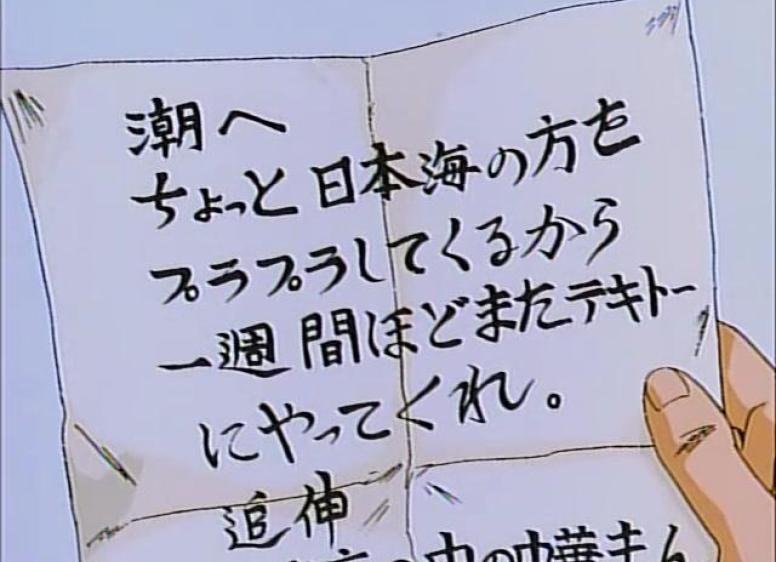 潮へ
ちょっと日本海の方を
プラプラしてくるから
一週間ほどまたテキトー
にやってくれ。
追伸
の中の中華まん